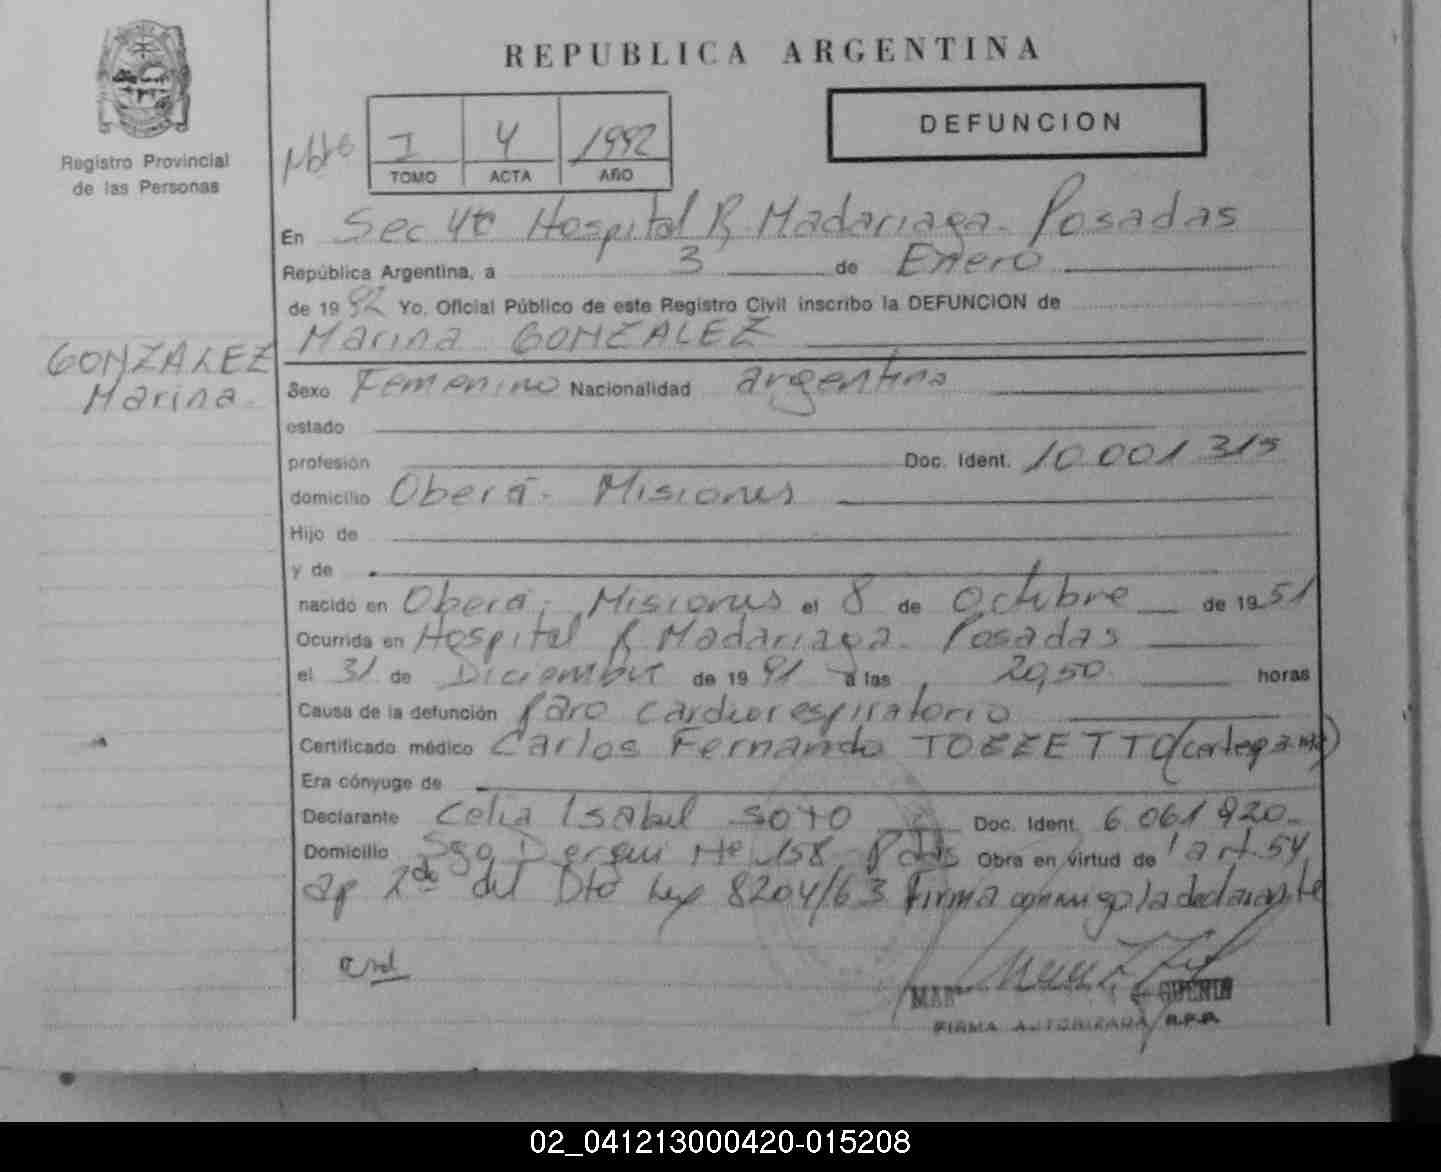 REPUBLICA ARGENTINA
DEFUNCION
Registro Provincial
de las Personas
I 4 1992
TOMO ACTA AÑO
En Sec 4ta Hospital R. Madariaga. Posadas
República Argentina, a 3 de Enero
de 1992 Yo, Oficial Público de este Registro Civil inscribo la DEFUNCION de
Marina GONZALEZ
GONZALEZ
Marina.
Sexo Femenino Nacionalidad argentina
estado
profesión Doc. Ident. 10.001.315
domicilio Oberá. Misiones
Hijo de
y de
nacido en Oberá, Misiones el 8 de Octubre de 1951
Ocurrida en Hospital R. Madariaga. Posadas
el 31 de Diciembre de 1991 a las 20,50 horas
Causa de la defunción paro cardiorespiratorio
Certificado médico Carlos Fernando TOZZETTO
Era cónyuge de
Declarante Celia Isabel SOTO Doc. Ident. 6.061.920.
Domicilio Sgo Derqui Nº 158 Pdas Obra en virtud de l art. 54
ap 2do del Dto Ley 8204/63 Firma conmigo la declarante
FIRMA AUTORIZADA R.P.P.
02_041213000420-015208